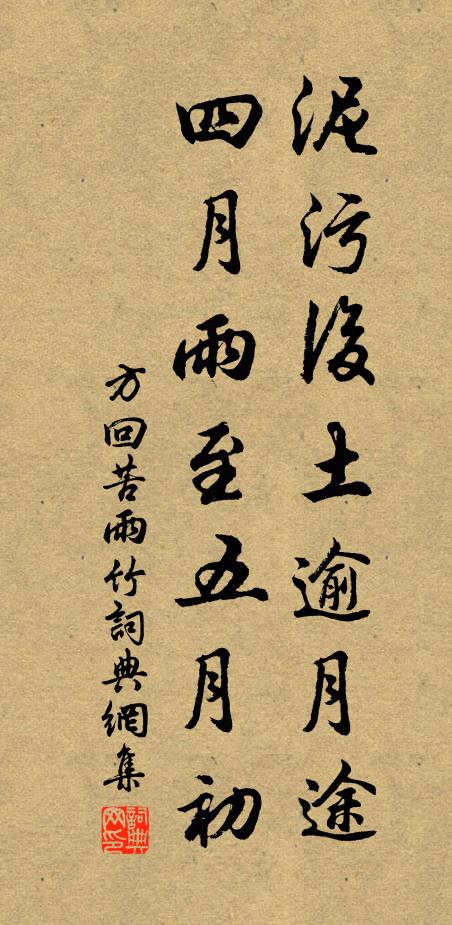 泥污後土逾月途
四月雨至五月初
方回苦雨竹詞典網集
詞典网印